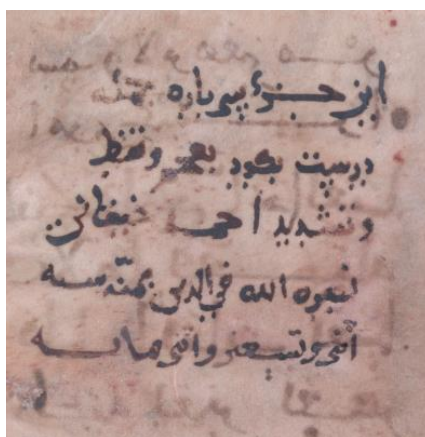 این جزؤ سی باره همه
درست بکرد بعجم ونقط
وتشدید احمد خیقانی
نصره الله في الدین بمنّه سنه
اثنی وتسعین واثنی مایه